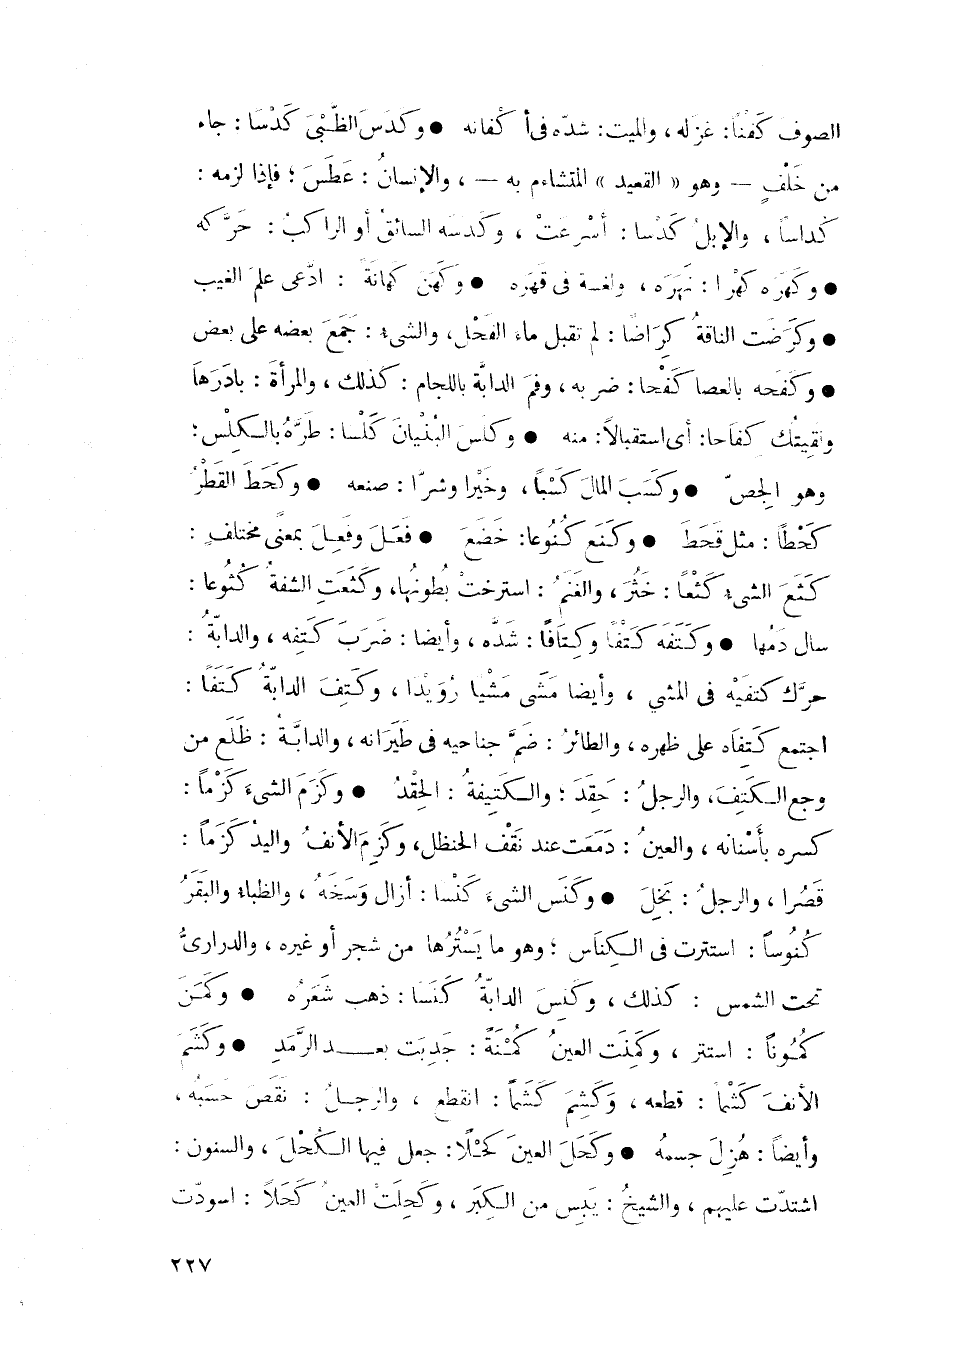 الصوف كَفْنًا: غزله، والميت: شدّه فى أكْفانه ● وكَدَسَ الظَّبْىُ كَدْسًا: جاء
من خَلْفٍ — وهو « القعيد » المتشاءم به — ، والإنسانُ: عَطَسَ؛ فإذا لزمه:
كُداساً، والإبلُ كَدْسا: أسْرعَتْ، وكدسه السائقُ أو الراكبُ: حَرَّكه
● وكَهَرَه كَهْرا: نَهَرَه، ولغسة فى قَهَرَه ● وكَهَنَ كَهانَة: ادّعى علمَ الغيب
● وكَرَضَت الناقةُ كِرَاضًا: لم تقبل ماء الفَحْل، والشىء: جَمَعَ بعضه على بعض
● وكَفَحه بالعصا كَفْحا: ضربه، وفمَ الدابَّة باللجام: كذلك، والمرأةَ: بادَرَها
ولقِيتُك كِفَاحا: أى استقبالاً: منه ● وكَلَسَ البُنْيانَ كَلْسا: طَرَّهُ بالكِلْس؛
وهو الجِصّ ● وكَسَبَ المالَ كَسْباً، وخَيْرا وشرًّا: صنعه ● وكَحَطَ القَطْرُ
كَحْطاً: مثل قَحَطَ ● وكَنَع كُنُوعا: خَضَعَ ● فَعَلَ وفَعِلَ بمعنًى مختلفٍ:
كَثَعَ الشىء كَثْعاً: خَثُرَ، والغَنَمُ: استرخَتْ بُطونُها، وكَثَعَتِ الشفةُ كُثُوعا:
سال دَمُها ● وكَتَفَه كَتْفًا وكِتَافًا: شَدَّه، وأيضا: ضَرَبَ كَتِفه، والدابّةُ:
حرَّك كتفَيْه فى المشي، وأيضا مَشَى مَشْيا رُوَيْدا، وكَتِفَ الدابةُ كَتَفًا:
اجتمع كَتِفَاه على ظهره، والطائرُ: ضَمَّ جناحيه فى طَيَرَانه، والدابَّةُ: ظَلَع من
وجع الكَتِفَ، والرجلُ: حَقِدَ؛ والكَتِيفةُ: الحِقْدُ ● وكَزَمَ الشىءَ كَزْماً:
كسره بأَسْنانه، والعينُ: دَمَعَت عند نَقْف الحنظل، وكَزِمَ الأنفُ واليدُ كَزَماً:
قَصُرا، والرجلُ: بَخِلَ ● وكَنَس الشىءَ كَنْسا: أزال وَسَخَهُ، والظباء والبَقَرُ
كُنُوساً: استترت فى الكِناَس؛ وهو ما يَسْتُرُها من شجر أو غيره، والدرارىُّ
تحت الشمس: كذلك، وكَنِسَ الدابّةُ كَنَسا: ذهب شَعَرُه ● وكَمَنَ
كُمُوناً: استتر، وكَمِنَت العينُ كُمْنَةً: جَدِبَت بعد الرَّمَدِ ● وكَشَمَ
الأنفَ كَشْما: قطعه، وكَشِمَ كَشَماً: انقطع، والرجلُ: نَقَصَ حَسَبُه،
وأيضاً: هُزِلَ جسمهُ ● وكَحَلَ العينَ كَحْلًا: جعل فيها الكُحْلَ، والسنون:
اشتدّت عليهم، والشيخُ: يَبِس من الكِبَر، وكَحِلَتْ العينُ كَحَلاً: اسودّت
٢٢٧